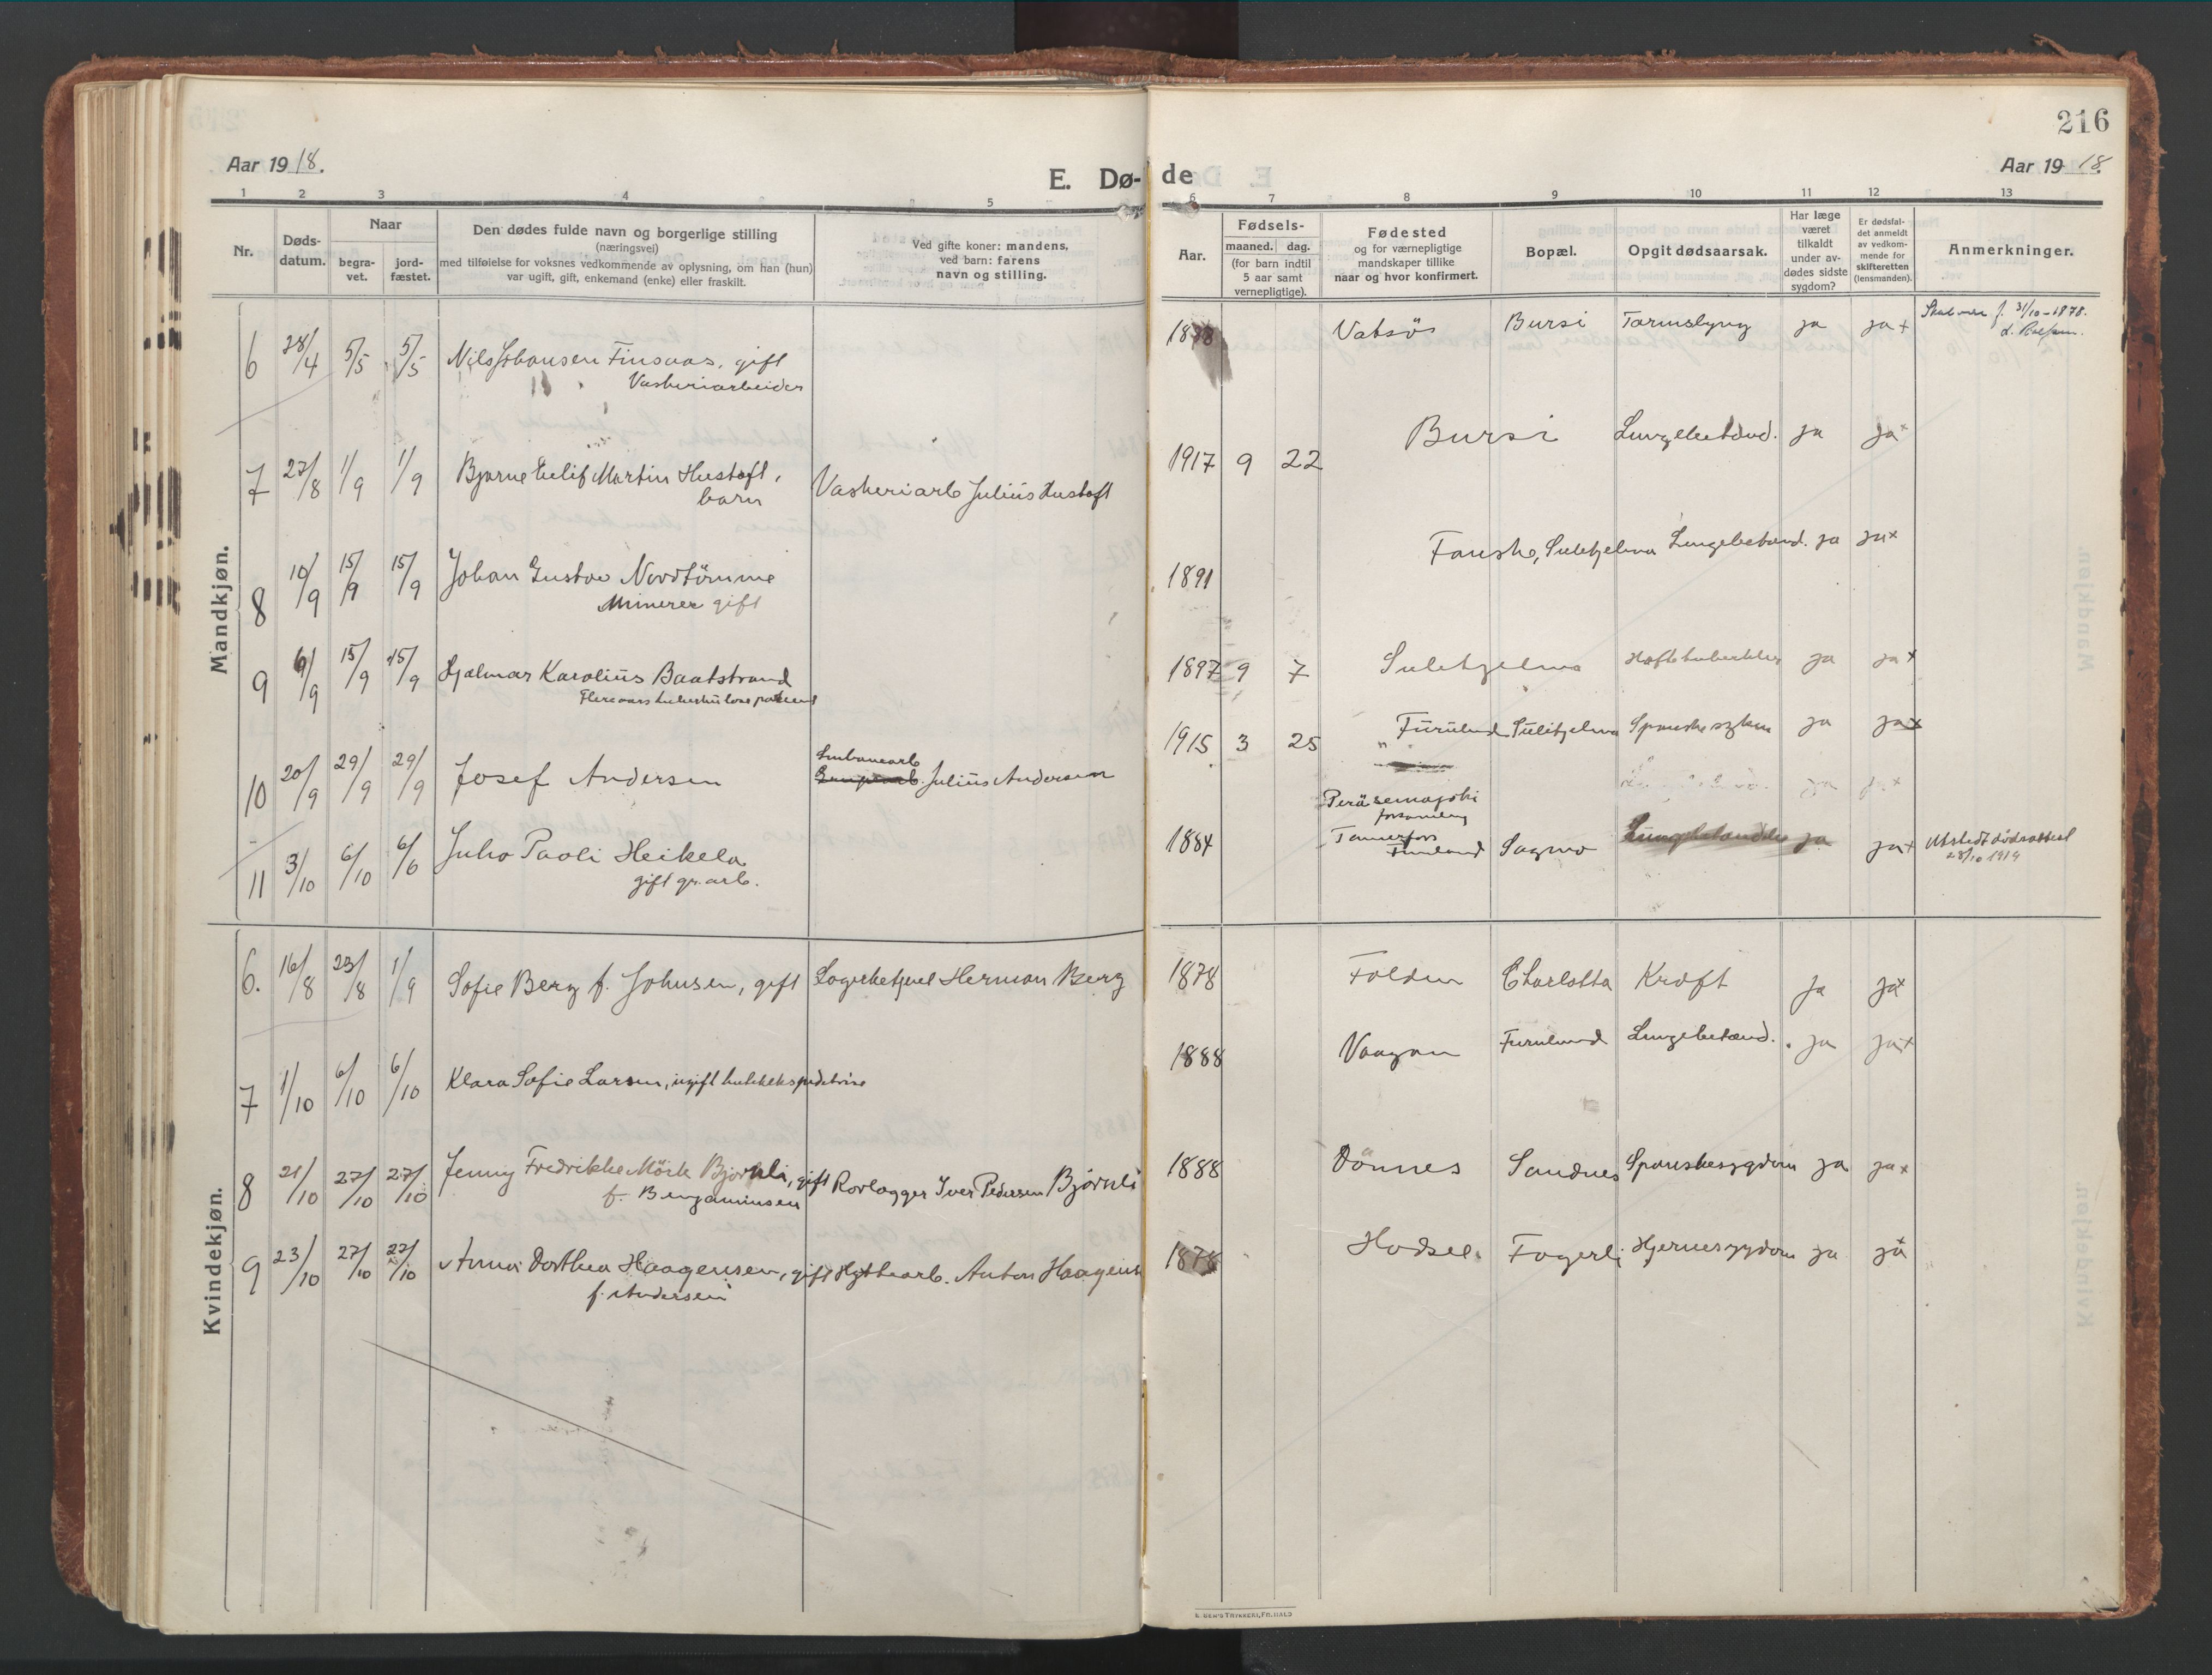 216
Aar 1918.
E. Dø-de
Aar 1918.
1 2 3 4 5 6 7 8 9 10 11 12 13
Nr.
Døds-
datum.
Naar
begra-
vet.
jord-
fæstet.
Den dødes fulde navn og borgerlige stilling
(næringsvei)
med tilføielse for voksnes vedkommende av oplysning, om han (hun)
var ugift, gift, enkemand (enke) eller fraskilt.
Ved gifte koner: mandens,
ved barn: farens
navn og stilling.
Aar.
Fødsels-
maaned. dag.
(for barn indtil
5 aar samt
vernepligtige).
Fødested
og for værnepligtige
mandskaper tillike
naar og hvor konfirmert.
Bopæl.
Opgit dødsaarsak.
Har læge
været
tilkaldt
under av-
dødes sidste
sygdom?
Er dødsfal-
det anmeldt
av vedkom-
mende for
skifteretten
(lensmanden).
Anmerkninger.
Mandkjøn.
6 28/4 5/5 5/5 Nils Johansen Finsaas, gift
Vaskeriarbeider
1878 Vatsös Bursi Tarmslyng ja ja +
f. 31/10-1878.
7 27/8 1/9 1/9 Bjarne Eilif Martin Hustoft,
barn
Vaskeriarb Julius Hustoft
1917 9 22 Bursi Lungebetænd. ja ja +
8 10/9 15/9 15/9 Johan Gustav Nordtömme
Minerer gift
1891 Fauske, Sulitjelma Lungebetænd. ja ja +
9 6/9 15/9 15/9 Hjalmar Karolius Baatstrand
Flereaars tuberkulose patient
1897 9 7 Sulitjelma Hoftetuberkulos ja ja +
10 20/9 29/9 29/9 Josef Andersen
Julius Andersen
1915 3 25 Furulund Sulitjelma Spanske syken ja ja +
11 3/10 6/10 6/6 Juho Paoli Heikela
gift gr. arb.
1884
forsamling
Tammerfors
Finland
Sagmo Lungebetændelse ja ja +
Utstedt dødsattest
28/10 1919
Kvindekjøn.
6. 16/8 23/8 1/9 Sofie Berg f. Johnsen, gift Herman Berg
1878 Folden Charlotta Kræft ja ja +
7 1/10 6/10 6/10 Klara Sofie Larsen, ugift butikekspeditrise
1888 Vaagan Furulund Lungebetænd. ja ja +
8 21/10 27/10 27/10 Jenny Fredrikke Mörk Bjørnli, gift
f. Benjaminsen
Rørlægger Iver Pedersen Bjørnli
1888 Dönnes Sandnes Spanskesygdom ja ja +
9 23/10 27/10 27/10 Anna Dorthea Haagensen, gift
f. Andersen
Hyttearb. Anton Haagens
1878 Hadsel Fagerli Hjernesygdom ja ja +